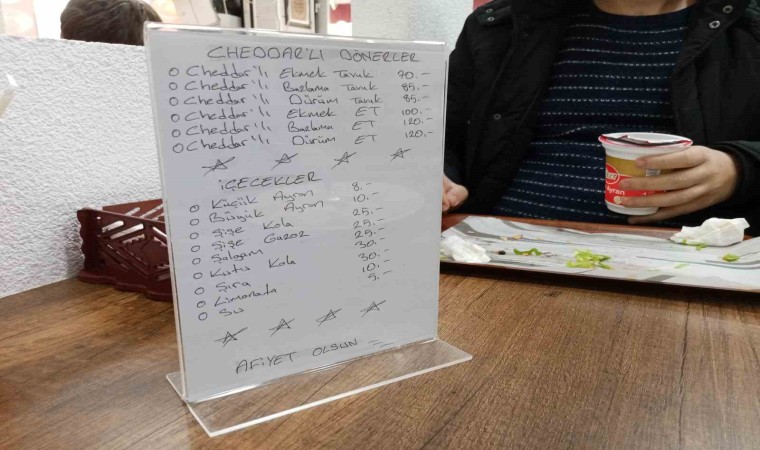 CHEDDAR'LI DÖNERLER
Cheddar'lı Ekmek Tavuk 70.-
Cheddar'lı Bazlama Tavuk 85.-
Cheddar'lı Dürüm Tavuk 85.-
Cheddar'lı Ekmek ET 100.-
Cheddar'lı Bazlama ET 120.-
Cheddar'lı Dürüm ET 120.-
İÇECEKLER
Küçük Ayran 8.-
Büyük Ayran 10.-
Şişe Kola 25.-
Şişe Gazoz 25.-
Şalgam 25.-
Kutu Kola 30.-
Şıra 30.-
Limonata 10.-
Su 5.-
AFİYET OLSUN
Ayran